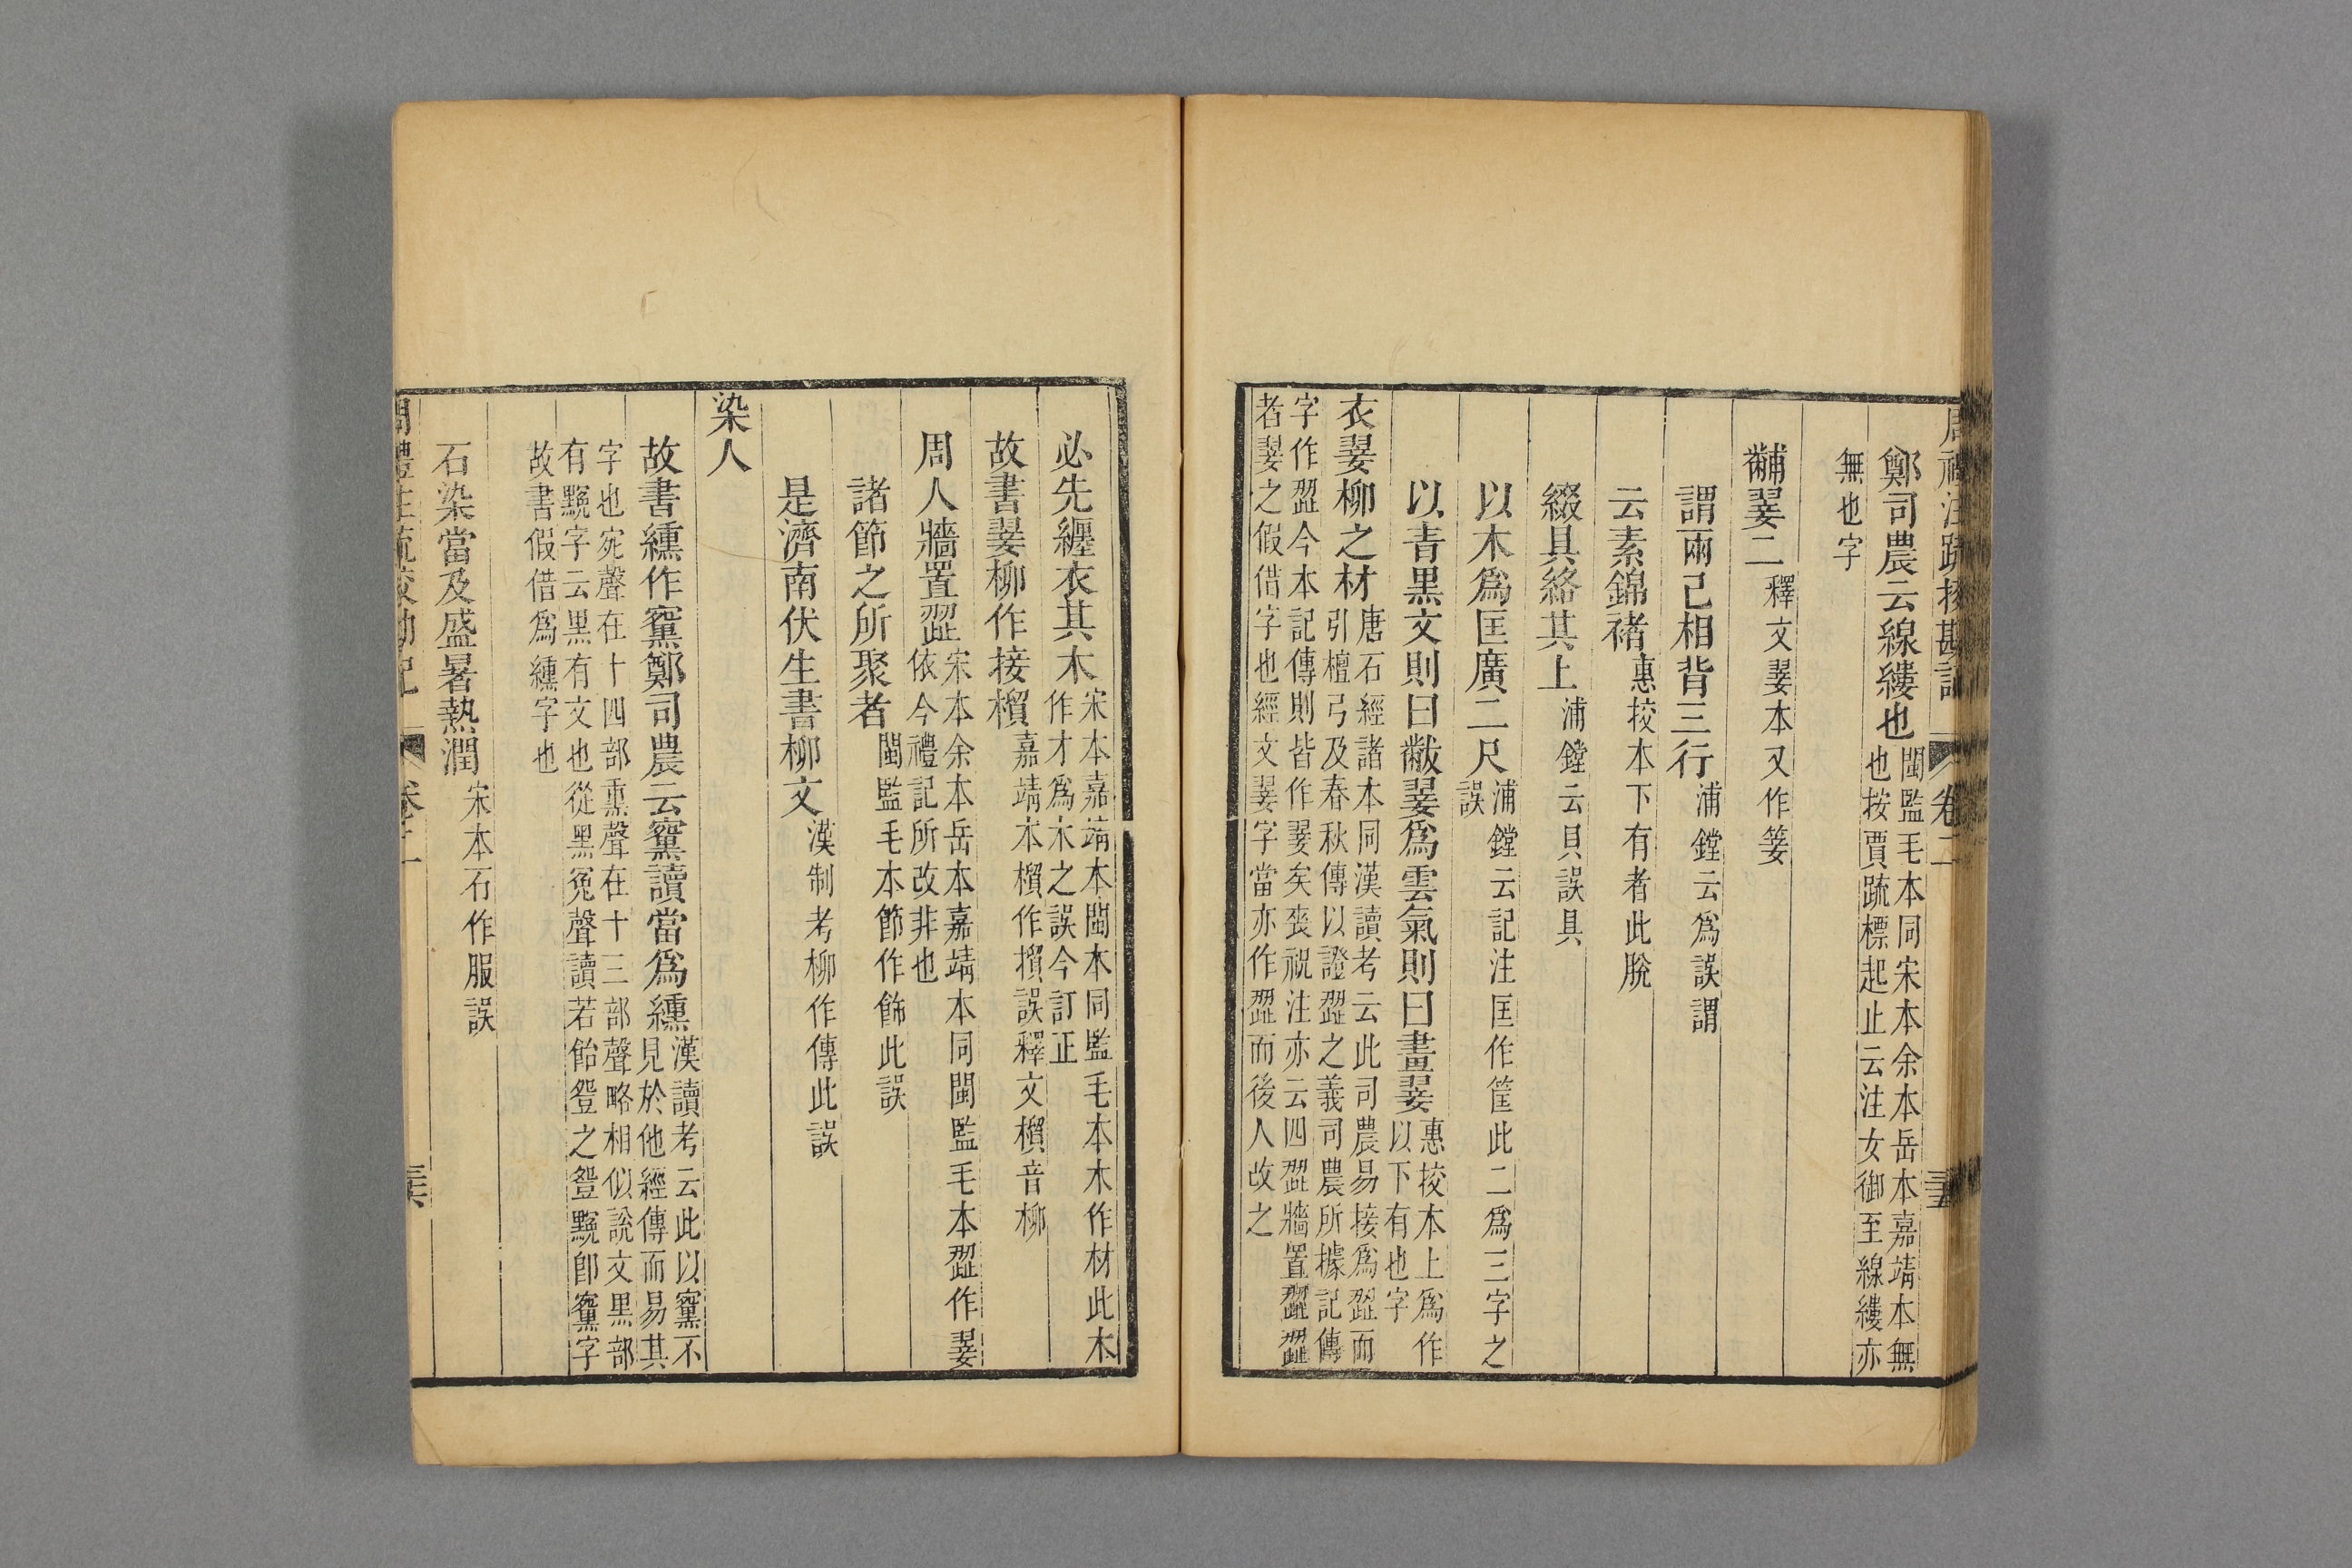 周禮注疏挍勘記 卷二 三五
鄭司農云線縷也閩監毛本同宋本余本岳本嘉靖本無
也按賈疏標起止云注女御至線縷亦
無也字
黼翣二釋文翣本又作箑
謂兩己相背三行浦鏜云爲誤謂
云素錦褚惠挍本下有者此脫
綴具絡其上浦鏜云貝誤具
以木爲匡廣二尺浦鏜云記注匡作筐此二爲三字之
誤
以青黑文則曰黻翣爲雲氣則曰畫翣惠挍本上爲作
以下有也字
衣翣柳之材唐石經諸本同漢讀考云此司農易接爲歰而
引檀弓及春秋傳以證歰之義司農所據記傳
字作歰今本記傳則皆作翣矣喪祝注亦云四歰牆置歰歰
者翣之假借字也經文翣字當亦作歰而後人改之
必先纏衣其木宋本嘉靖本閩本同監毛本木作材此木
作才爲木之誤今訂正
故書翣柳作接櫇嘉靖本櫇作擯誤釋文櫇音柳
周人牆置歰宋本余本岳本嘉靖本同閩監毛本歰作翣
依今禮記所改非也
諸節之所聚者閩監毛本節作飾此誤
是濟南伏生書柳文漢制考柳作傳此誤
染人
故書纁作䵫鄭司農云䵫讀當爲纁漢讀考云此以䵫不
見於他經傳而易其
字也宛聲在十四部熏聲在十三部聲略相似說文黑部
有䵫字云黑有文也從黑冤聲讀若飴䇔之䇔䵫卽䵫字
故書假借爲纁字也
石染當及盛暑熱潤宋本石作服誤
周禮注疏挍勘記 卷二 三六